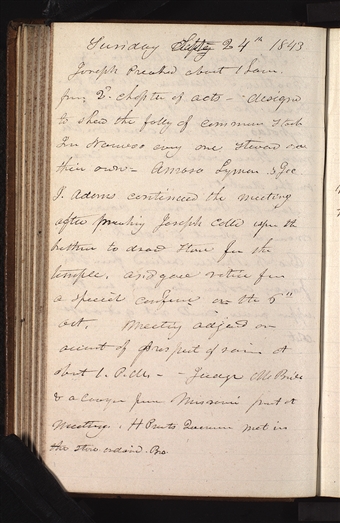 Sunday Septy 24th 1843
Joseph Preached about 1 hour.
from 2d. chapter of acts — designed
to shew the folly of common stock
In Nauvoo every one steward over
their own — Amasa Lyman & Geo
J. Adams continued the meeting
after preaching Joseph calld upon the
brethren to draw stone for the
temple. and gave notice for
a special conference on the 5th
oct. Meeting adjd on
account of prospect of rain at
about 1. P.M. — Judge McBride
& a lawyer from Missouri prest at
Meeting. H Priests Quorum met in
the store